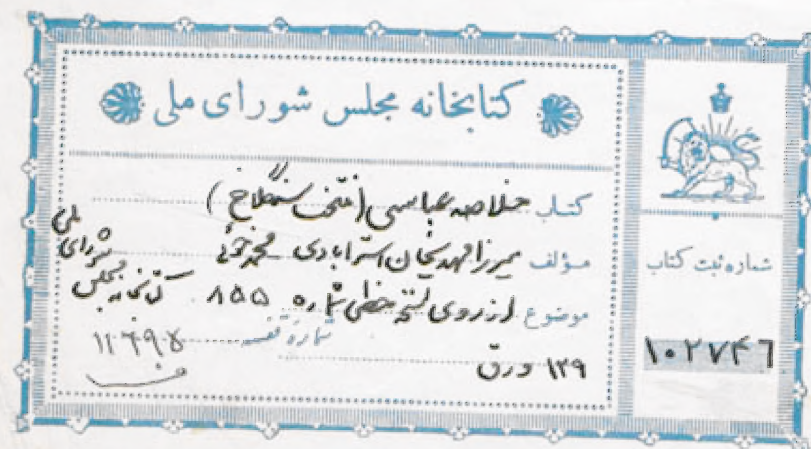 کتابخانه مجلس شورای ملی
کتاب خلاصه عباسی (منتخب سنگلاخ)
مؤلف میرزا مهدیخان استرآبادی محمد خوئی
موضوع از روی نسخه خطی شماره ۸۵۵ کتابخانه مجلس شورای ملی
شماره قفسه
۱۳۹ ورق
شماره ثبت کتاب
۱۰۲۷۴۶